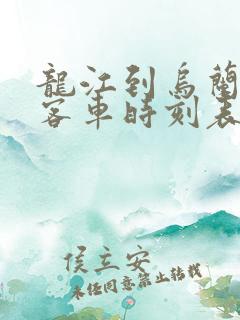 龍江到烏蘭
客車時刻表
侯立安
未经同意禁止转载